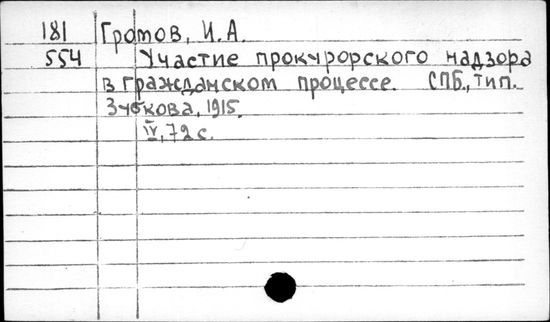 181 Громов, И.А.
554 Участие прокурорского надзора
в гражданском процессе. СПБ., тип.
Зубкова, 1915.
IV, 72 с.